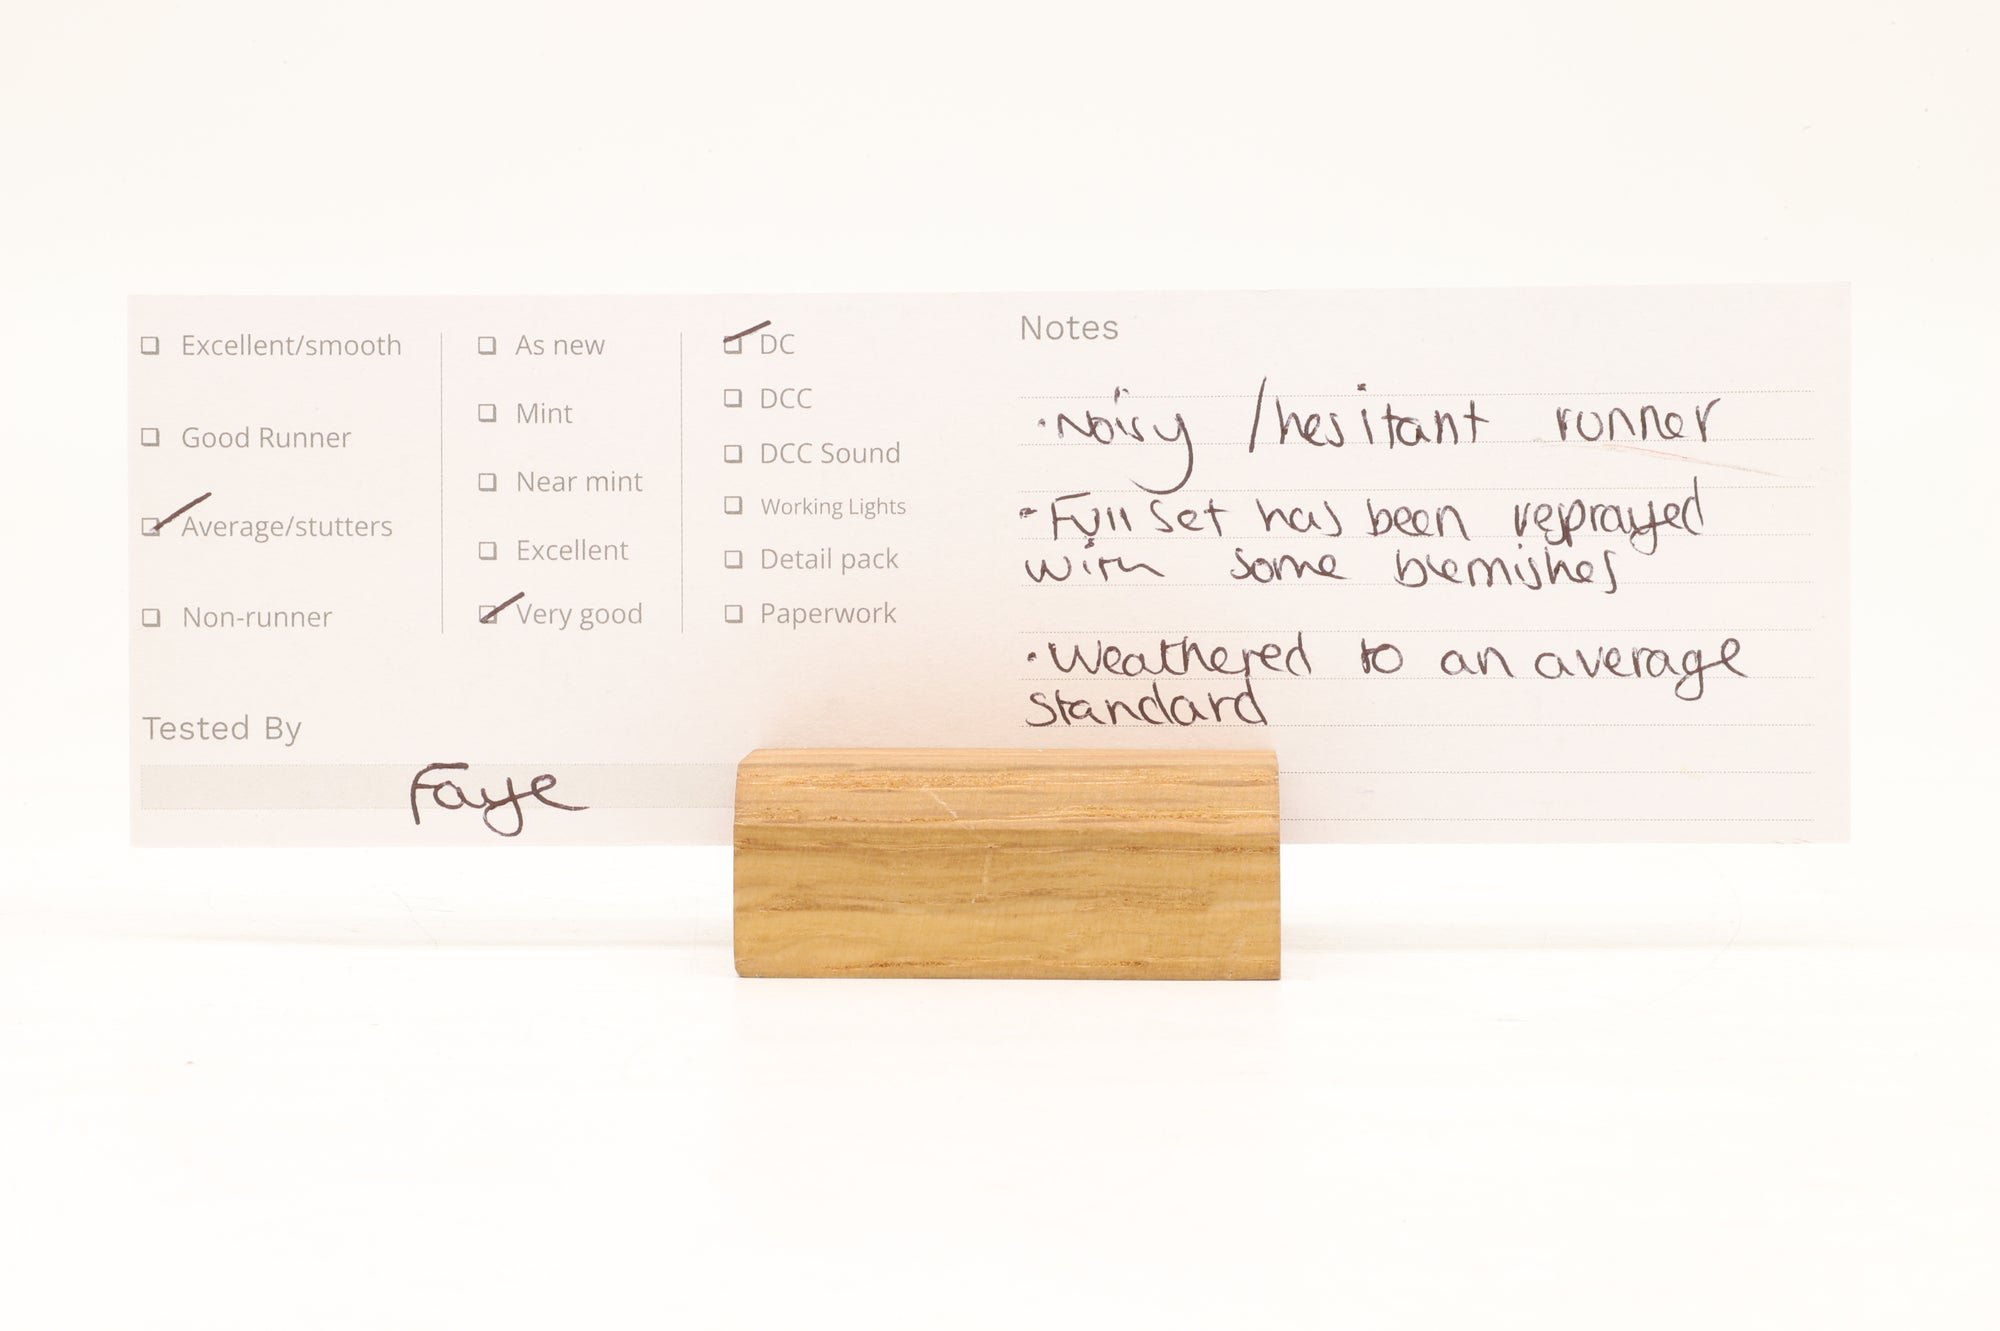 ☐ Excellent/smooth
☐ Good Runner
☑ Average/stutters
☐ Non-runner
☐ As new
☐ Mint
☐ Near mint
☐ Excellent
☑ Very good
☑ DC
☐ DCC
☐ DCC Sound
☐ Working Lights
☐ Detail pack
☐ Paperwork
Tested By
Faye
Notes
·Noisy /hesitant runner
·Full set has been resprayed
with some blemishes
·Weathered to an average
standard